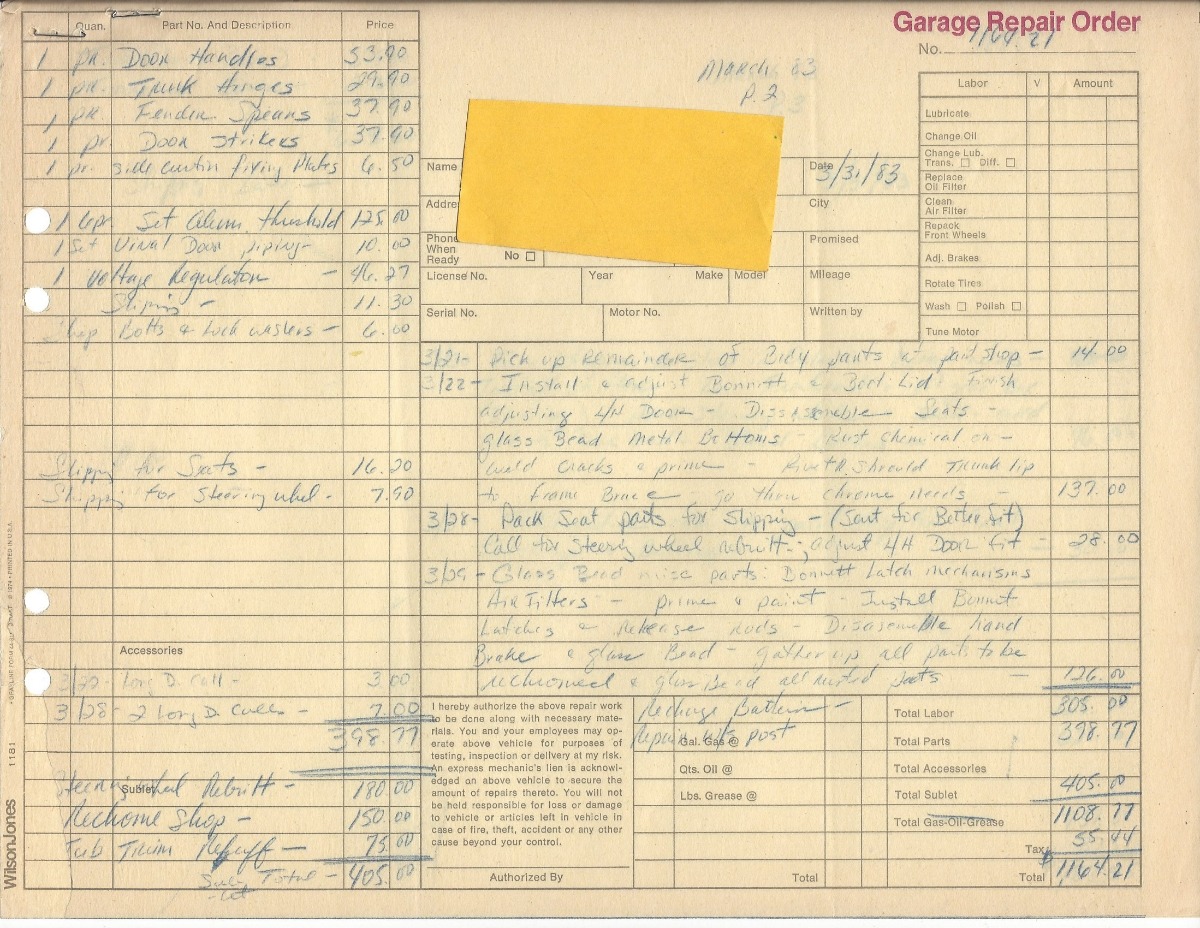 Garage Repair Order
No. 1164.21
March 83
P. 2
Quan. Part No. And Description Price
1 pr. Door Handles 53.90
1 pr. Trunk Hinges 29.90
1 pr. Fender Spears 37.90
1 pr. Door Strikers 37.90
1 pr. side curtin fixing Plates 6.50
1 Set Alum threshold 125.00
1 Set Vinal Door piping 10.00
1 Voltage Regulator - 46.27
Shipping - 11.30
Shop Bolts & Lock washers - 6.00
Shipping for Seats - 16.20
Shipping for steering whel - 7.90
Accessories
3/22 - Long D. Call - 3.00
3/28 - 2 Long D. Calls - 7.00
398.77
Sublet
Steering wheel Rebuilt - 180.00
Rechome Shop - 150.00
Tub Trim Rebuff - 75.00
Sub let Total - 405.00
Name
Date 3/31/83
Addre
City
Phone
When
Ready
No
Promised
License No. Year Make Model Mileage
Serial No. Motor No. Written by
Labor V Amount
Lubricate
Change Oil
Change Lub.
Trans. Diff.
Replace
Oil Filter
Clean
Air Filter
Repack
Front Wheels
Adj. Brakes
Rotate Tires
Wash Polish
Tune Motor
3/21- Pick up remainder of Body parts at paint shop - 14.00
3/22- Install & adjust Bonnitt & Boot Lid. Finish
adjusting L/H Door - Dissasemble Seats -
glass Bead Metal Bottoms - Rust chemical on -
weld cracks & prime - Rivet R. Should Trunk lip
to frame Brace - go thru chrome needs - 137.00
3/28- Pack Seat parts for Shipping - (Sent for Better fit)
Call for Steering wheel rebuilt -, adjust L/H Door fit - 28.00
3/29 - Glass Bead misc parts: Bonnett Latch mechanisms
Air Filters - prime & paint - Install Bonnet
Latches & Release rods - Disasemble hand
Brake & glass Bead - gather up all parts to be
rechromed & glass Bead all rusted parts - 126.00
I hereby authorize the above repair work
to be done along with necessary mate-
rials. You and your employees may op-
erate above vehicle for purposes of
testing, inspection or delivery at my risk.
An express mechanic's lien is acknowl-
edged on above vehicle to secure the
amount of repairs thereto. You will not
be held responsible for loss or damage
to vehicle or articles left in vehicle in
case of fire, theft, accident or any other
cause beyond your control.
Authorized By
Recharge Battery -
Repair post
Gal. Gas @
Qts. Oil @
Lbs. Grease @
Total
Total Labor 305.00
Total Parts 398.77
Total Accessories
Total Sublet 405.00
Total Gas-Oil-Grease 1108.77
Tax 55.44
Total $1164.21
WilsonJones
1181
PRINTED IN U.S.A.